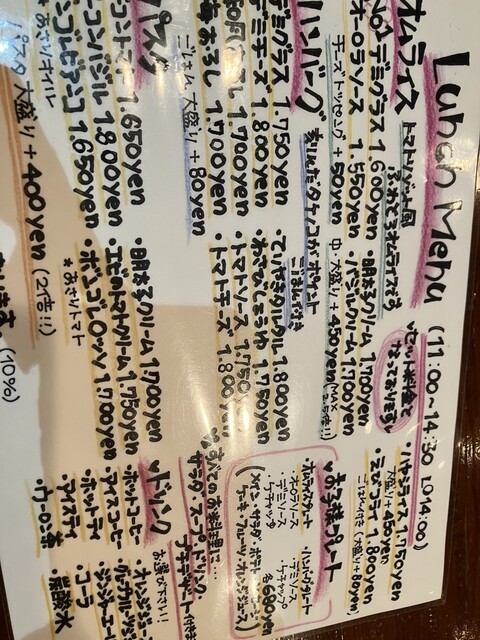 Lunch Menu (11:00〜14:30 LO14:00)
オムライス
デミグラス 1.600yen
オーロラソース 1.550yen
チーズトッピング +50yen
・明太子クリーム 1.700yen
・バジルクリーム 1.700yen
大盛り +450yen
ハンバーグ
デミグラス 1.750yen
デミチーズ 1.800yen
1.700yen
おろし 1.700yen
ごはん 大盛り +80yen
てりやきタルタル 1.800yen
・わさびしょうゆ 1.750yen
・トマトソース 1.750yen
・トマトチーズ 1.800yen
パスタ
1.650yen
ーコンバジル 1.800yen
ンゴレビアンコ 1.650yen
パスタ 大盛り +400yen (2倍!!)
・明太子クリーム 1.700yen
・エビのトマトクリーム 1.750yen
・ボンゴレロッソ 1.700yen
*あさりトマト
(10%)
セット料金となっております
・ハヤシライス 1.150yen
大盛り +250yen
・エビフライ 1.800yen
ごはん付き (大盛り +80yen)
お子様プレート
・オムライスプレート
・オーロラソース
・デミソース
・ケチャップ
・ハンバーグプレート
・デミソース
・ケチャップ
各680yen
すべてのお料理に…
サラダ・スープ・ドリンク
プチデザート付き
ドリンク
お選び下さい!!
・ホットコーヒー
・アイスコーヒー
・ホットティー
・アイスティー
・ウーロン茶
・コーラ
・炭酸水